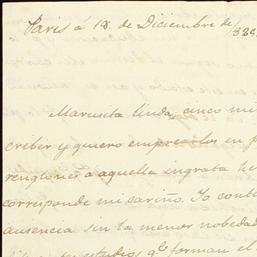 Paris á 18. de Diciembre de /889.
Marusita linda, cinco mi
cribir y quiero emplearlos en p
renglones a aquella ingrata he
corresponde mi cariño. Yo cont
ausencia sin la menor nobedad
estudios qe. forman el